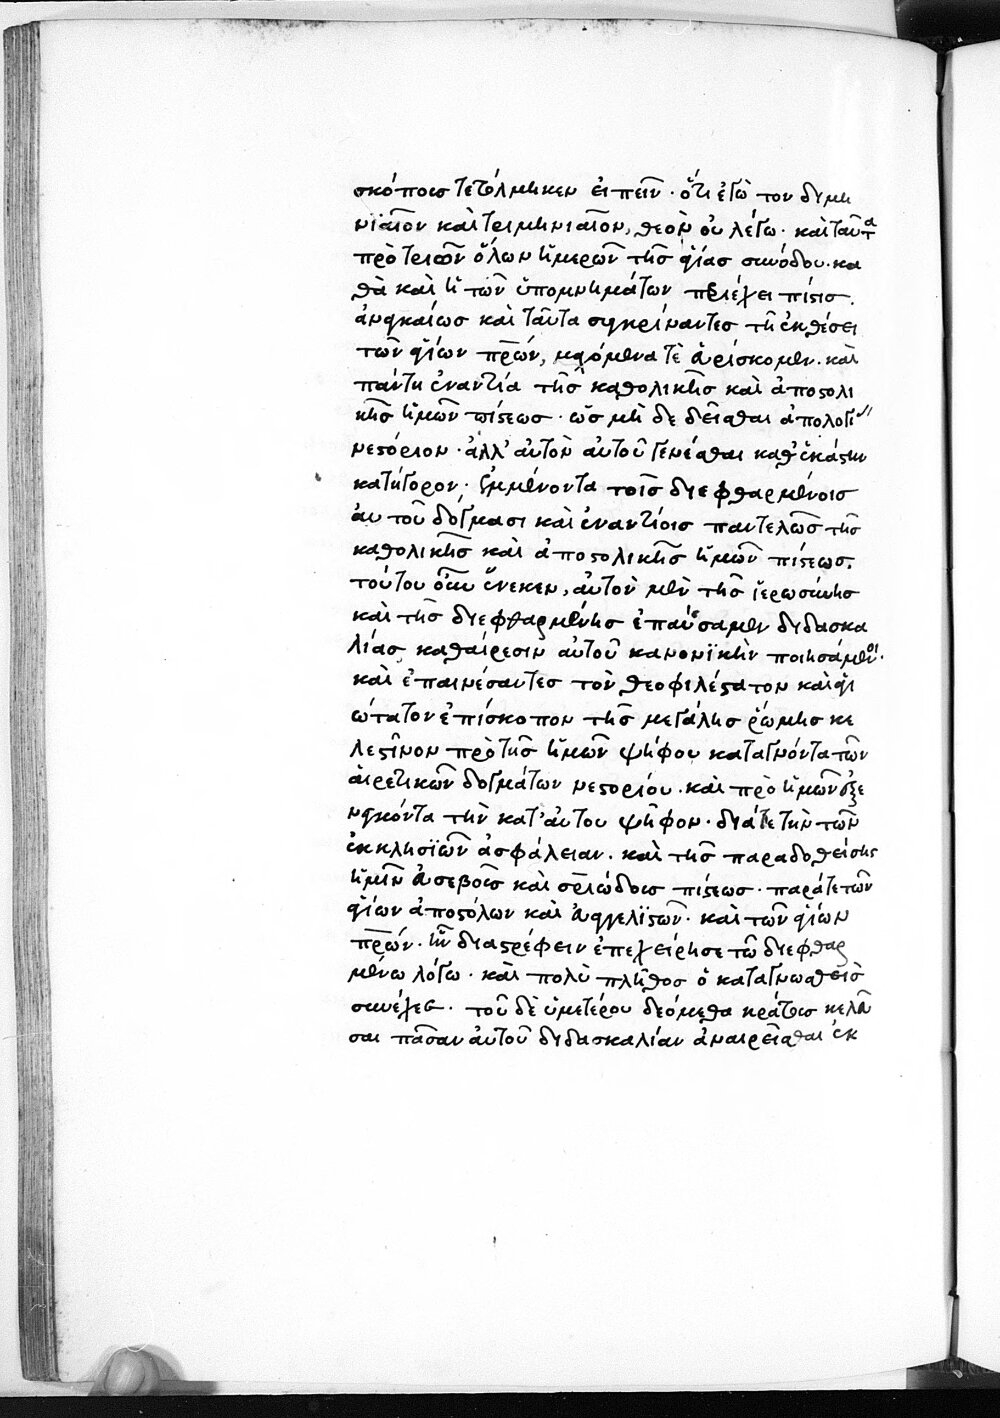 σκόποις τετόλμηκεν εἰπεῖν · ὅτι ἐγὼ τον διμη
νιαῖον καὶ τριμηνιαῖον, θεὸν οὐ λέγω · καὶ ταῦτα
πρὸ τριῶν ὅλων ἡμερῶν τῆς ἁγίας συνόδου · κα
θὰ καὶ ἡ τῶν ὑπομνημάτων περιέχει πίστις.
ἀναγκαίως καὶ ταῦτα συγκρίναντες τῇ ἐκθέσει
τῶν ἁγίων πρων, μαχόμενα τὲ εὑρίσκομεν · καὶ
πάντη ἐναντία τῆς καθολικῆς καὶ ἀποστολι
κῆς ἡμῶν πίστεως · ὡς μὴ δὲ δεῖσθαι ἀπολογίας
νεστόριον · ἀλλ' αὐτὸν αὐτοῦ γενέσθαι καθ' ἑκάστην
κατήγορον · ἐμμένοντα τοῖς διεφθαρμένοις
αὐτοῦ δόγμασι καὶ ἐναντίοις παντελῶς τῆς
καθολικῆς καὶ ἀποστολικῆς ἡμῶν πίστεως.
τούτου οὖν ἕνεκεν, αὐτὸν μὲν τῆς ἱερωσύνης
καὶ τῆς διεφθαρμένης ἐπαύσαμεν διδασκα
λίας, καθαίρεσιν αὐτοῦ κανονϊκὴν ποιησάμενοι ·
καὶ ἐπαινέσαντες τὸν θεοφιλέστατον καὶ ἁγι
ώτατον ἐπίσκοπον τῆς μεγάλης ῥώμης κε
λεστῖνον πρὸ τῆς ἡμῶν ψήφου καταγνόντα τῶν
αἱρετικῶν δογμάτων νεστορίου · καὶ πρὸ ἡμῶν ἐξε
νεγκόντα τὴν κατ' αὐτου ψῆφον · διά τε τὴν τῶν
ἐκκλησϊῶν ἀσφάλειαν · καὶ τῆς παραδοθείσης
ἡμῖν εὐσεβοῦς καὶ σριώδους πίστεως · παρά τε τῶν
ἁγίων ἀποστόλων καὶ εὐαγγελϊστῶν · καὶ τῶν ἁγίων
πρων · ἣν διαστρέφειν ἐπεχείρησε τῶ διεφθαρ
μένω λόγω · καὶ πολὺ πλῆθος ὁ καταγνωσθεὶς
συνέχεε · τοῦ δὲ ὑμετέρου δεόμεθα κράτους κελεῦ
σαι πᾶσαν αὐτοῦ διδασκαλίαν ἀναιρεῖσθαι ἐκ